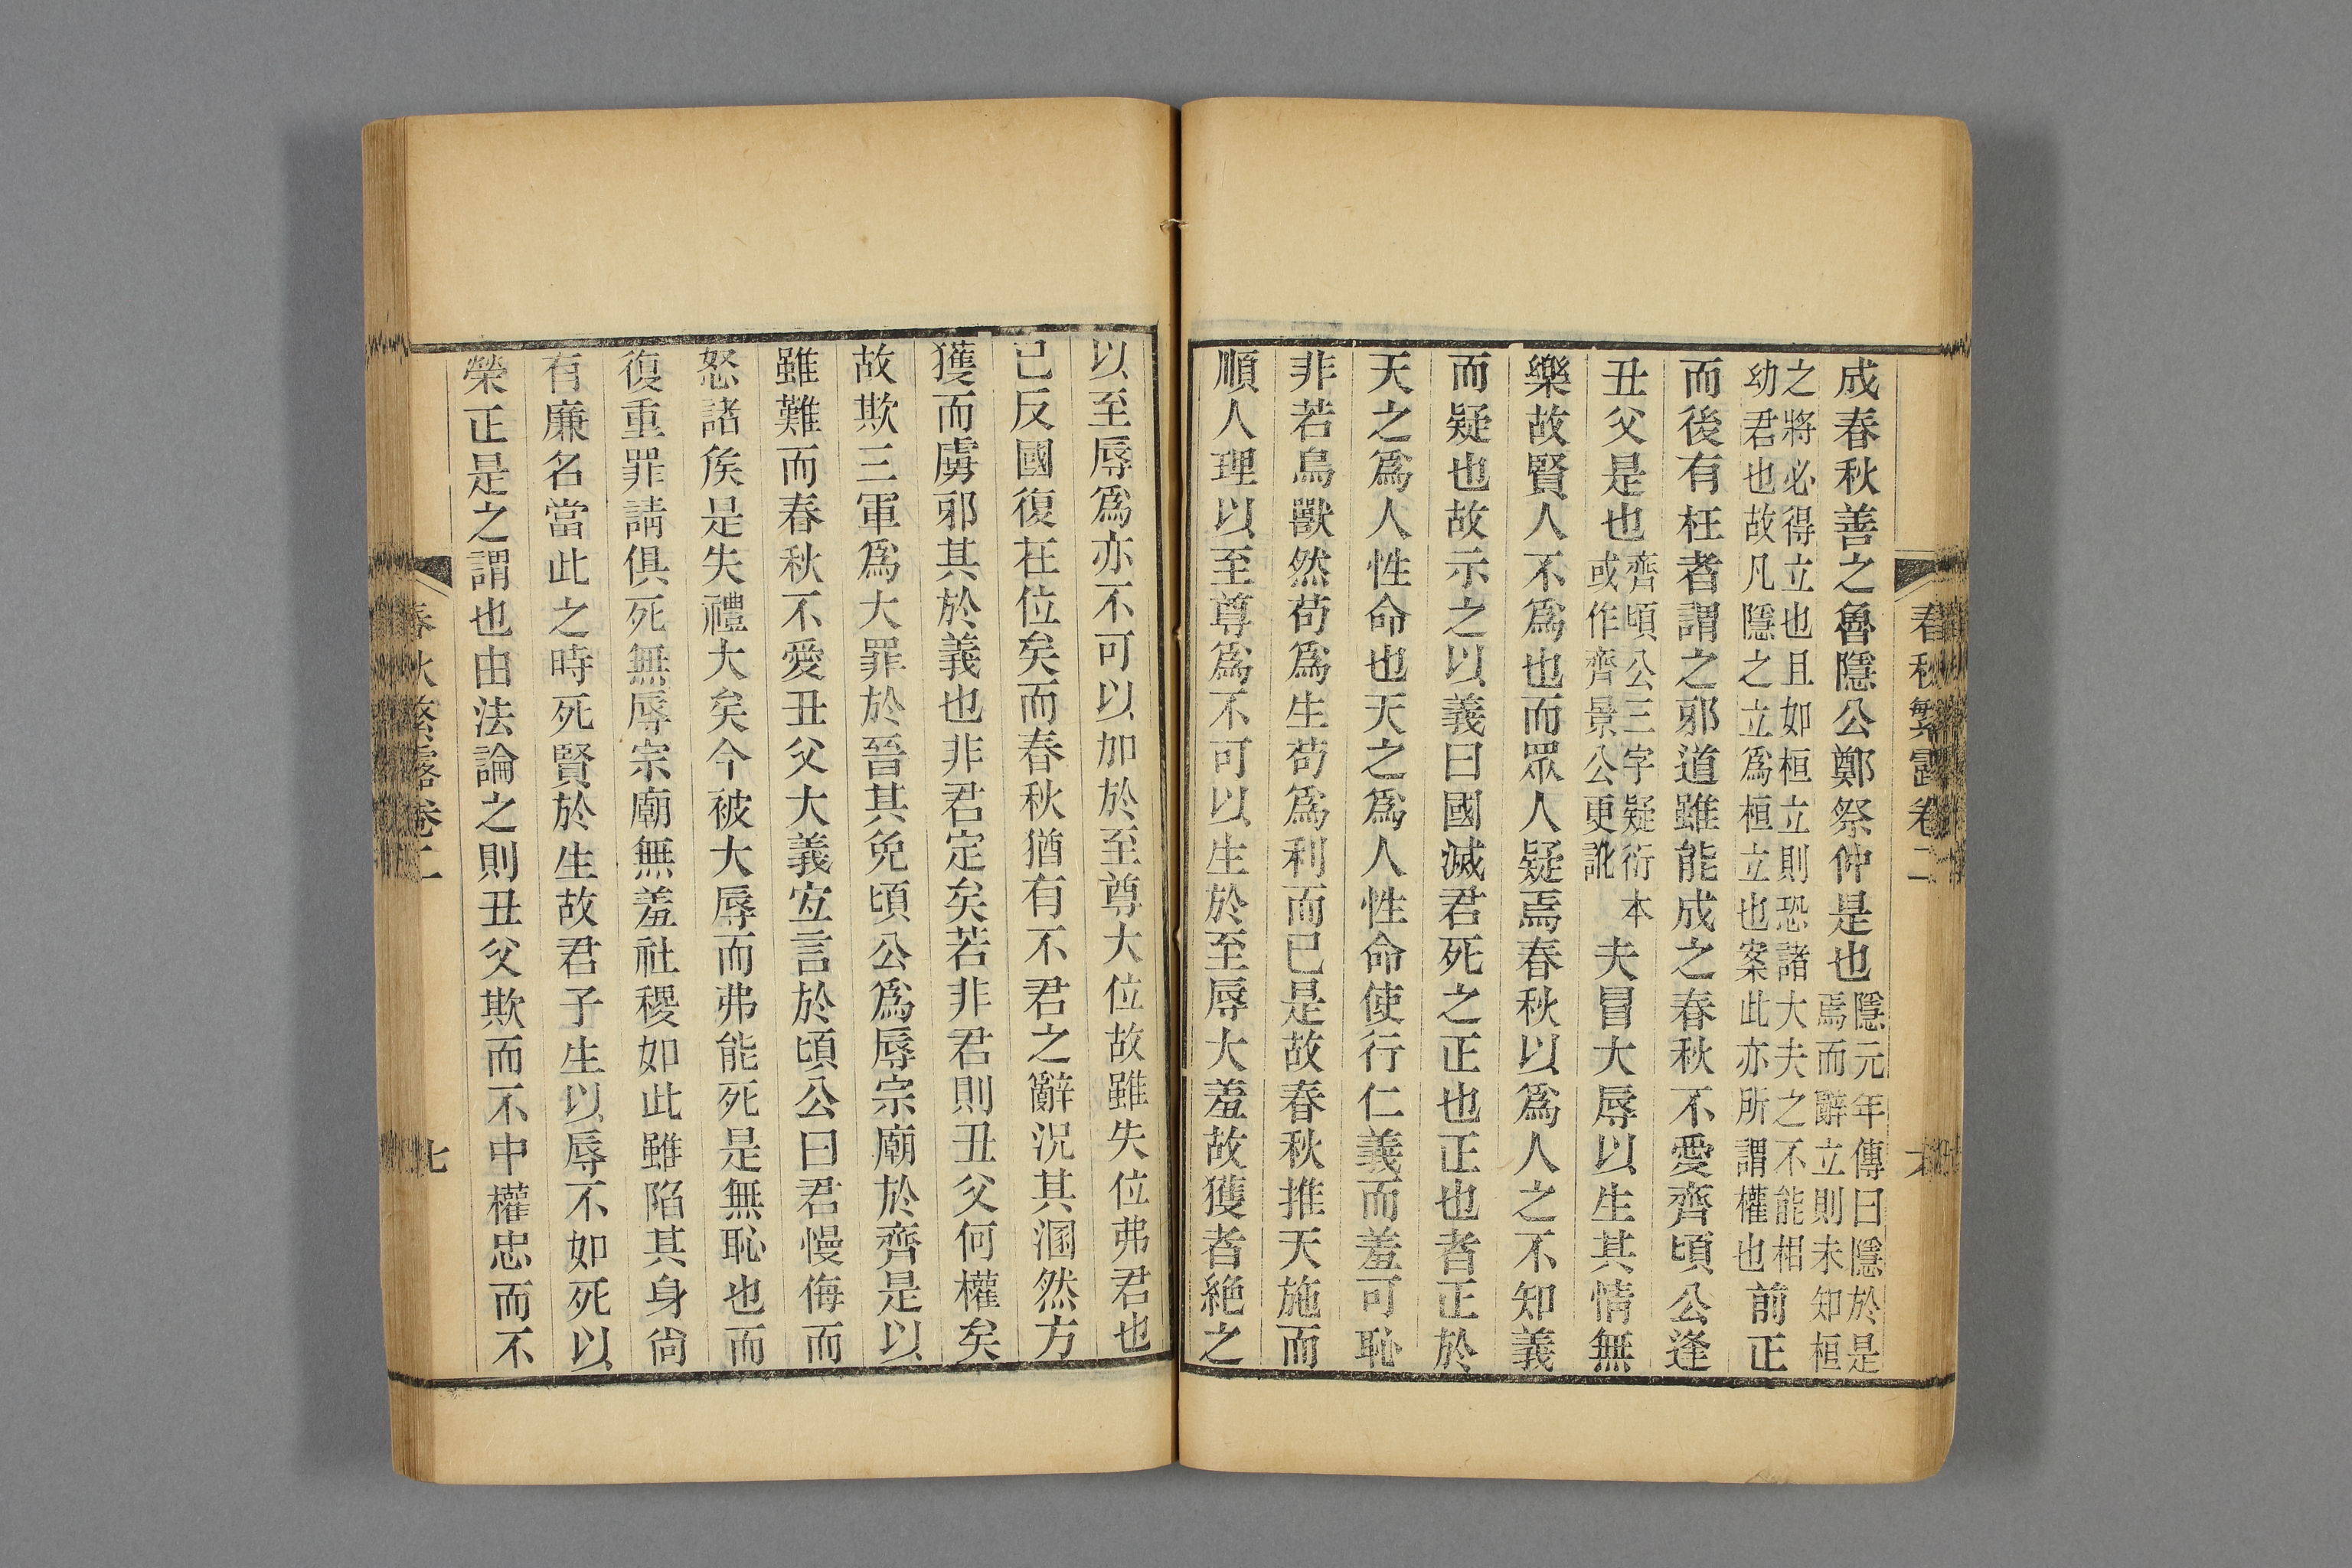 春秋繁露卷二
成春秋善之魯隱公鄭祭仲是也隱元年傳曰隱於是
焉而辭立則未知桓
之將必得立也且如桓立則恐諸大夫之不能相
幼君也故凡隱之立爲桓立也案此亦所謂權也前正
而後有枉者謂之邪道雖能成之春秋不愛齊頃公逢
丑父是也齊頃公三字疑衍本
或作齊景公更訛夫冒大辱以生其情無
樂故賢人不爲也而眾人疑焉春秋以爲人之不知義
而疑也故示之以義曰國滅君死之正也正也者正於
天之爲人性命也天之爲人性命使行仁義而羞可恥
非若鳥獸然苟爲生苟爲利而已是故春秋推天施而
順人理以至尊爲不可以生於至辱大羞故獲者絕之
以至辱爲亦不可以加於至尊大位故雖失位弗君也
已反國復在位矣而春秋猶有不君之辭況其溷然方
獲而虜邪其於義也非君定矣若非君則丑父何權矣
故欺三軍爲大罪於晉其免頃公爲辱宗廟於齊是以
雖難而春秋不愛丑父大義宐言於頃公曰君慢侮而
怒諸矦是失禮大矣今被大辱而弗能死是無恥也而
復重罪請俱死無辱宗廟無羞社稷如此雖陷其身尙
有廉名當此之時死賢於生故君子生以辱不如死以
榮正是之謂也由法論之則丑父欺而不中權忠而不
春秋繁露卷二
七